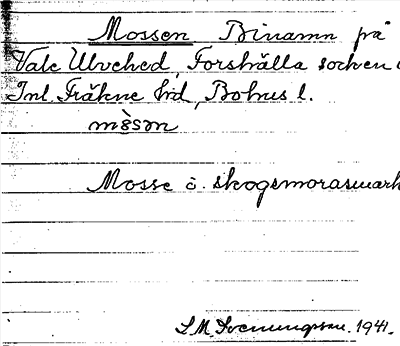 Mossen Binamn på
Vale Ulvehed, Forshälla socken i
Inl. Fräkne hd, Bohus l.
mòsən
Mosse o. skogsmorasmark
S.M. Svenungsson. 1941.